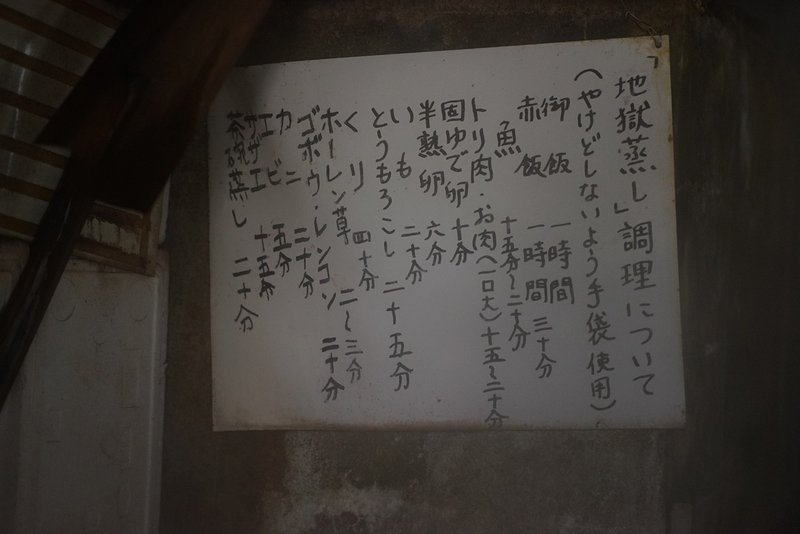 「地獄蒸し」調理について
(やけどしないよう手袋使用)
御飯 一時間
赤飯 一時間三十分
魚 十五分〜二十分
トリ肉・お肉(一口大)十五〜二十分
固ゆで卵 十分
半熟卵 六分
いも 二十分
とうもろこし 二十五分
くり 四十分
ホーレン草 二〜三分
ゴボウ・レンコン 二十分
カニ 二十分
エビ 五分
サザエ 十五分
茶碗蒸し 二十分